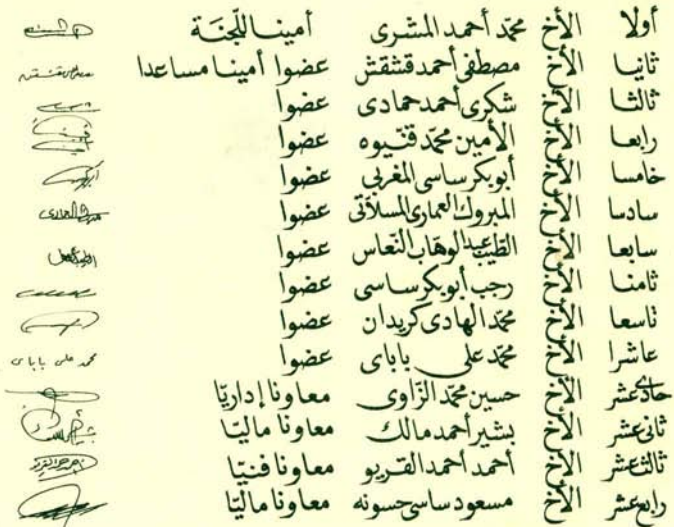 أولا الأخ محمّد أحمد المشرى أمينا للّجنَة
ثانيا الأخ مصطفى أحمد قشقش عضوا أمينا مساعدا
ثالثا الأخ شكرى أحمد حمادى عضوا
رابعا الأخ الأمين محمّد قنّيوه عضوا
خامسا الأخ أبوبكر ساسى المغربي عضوا
سادسا الأخ المبروك العمارى المسلّاتى عضوا
سابعا الأخ الطيّب عبد الوهّاب النّعاس عضوا
ثامنا الأخ رجب أبوبكر ساسى عضوا
تاسعا الأخ محمّد الهادى كريدان عضوا
عاشرا الأخ محمّد على باباى عضوا محمد على باباى
حادى عشر الأخ حسين محمّد الزّاوى معاونا إداريّا
ثانى عشر الأخ بشير أحمد مالك معاونا ماليّا
ثالث عشر الأخ أحمد احمد القريو معاونا فنيّا
رابع عشر الأخ مسعود ساسى حسونه معاونا ماليّا